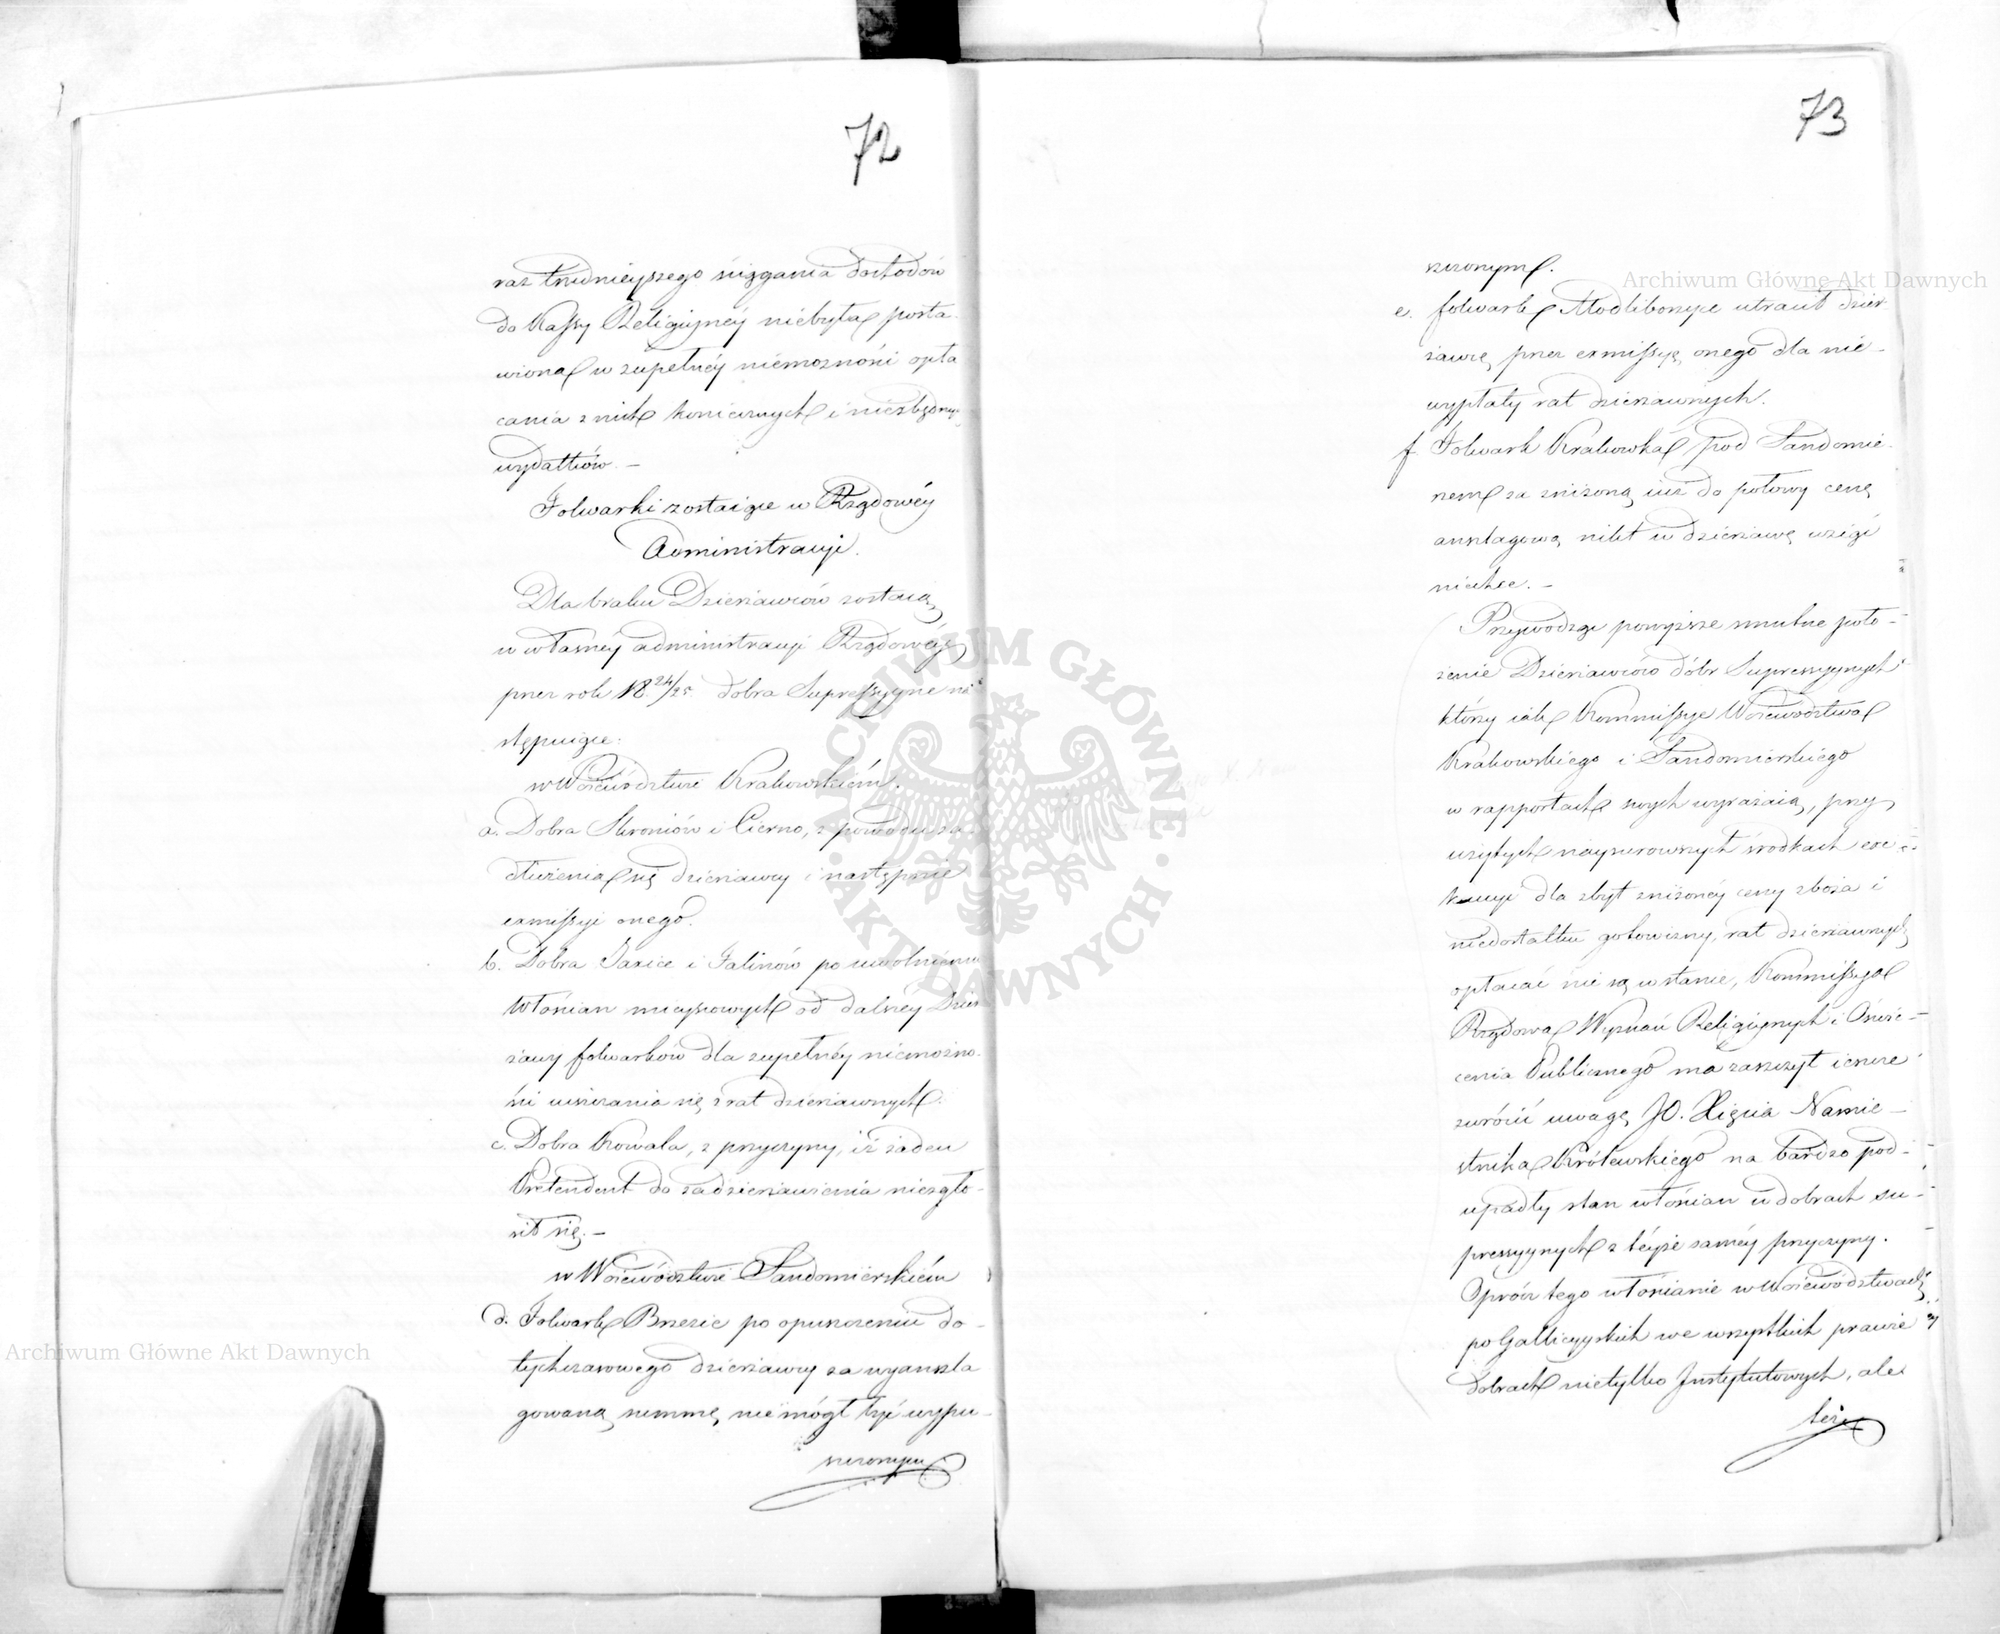 72
raz trudnieyszego ściągania dochodów
do Kassy Religiyney niebyła posta-
wioną w zupełney niemożności opła
cania z nich koniecznych i niezbędnych
wydatków. —
Folwarki zostaiące w Rządowéy
Administracyi.
Dla braku Dzierżawców zostaią
w własnéy administracyi Rządowéy
przez rok 18 24/25 dobra Supressyyne na
stępuiące:
w Woiewództwie Krakowskiém.
a. Dobra Skroniów i Cierno, z powodu za-
dłużenia się dzierżawcy i nastąpionéy
exmissyi onego.
b. Dobra Jaxice i Falinów po uwolnieniu
Włościan mieyscowych od dalszey Dzier
żawy folwarków dla zupełnéy niemożno-
ści uiszczania się z rat dzierżawnych.
c. Dobra Kowala, z przyczyny, iż żaden
Pretendent do zadzierżawienia niezgło-
sił się. —
w Woiewództwie Sandomierskiém
d. Folwark Brzezie po opuszczeniu do-
tychczasowego dzierżawcy za wyanszla
gowaną summę, nie mógł być wypu-
szczonym
73
szczonym.
e. folwark Modliborzyce utracił dzier
żawcę przez exmissyę onego dla nie-
wypłaty rat dzierżawnych.
f. Folwark Krakowka pod Sandomie-
rzem za zniżoną iuż do połowy cenę
anszlagową nikt w dzierżawę wziąć
niechce. —
Przywodząc powyższe smutne poło-
żenie Dzierżawców dóbr Supressyynych
którzy iak Kommissye Woiewództwa
Krakowskiego i Sandomierskiego
w rapportach swych wyrażaią, przy
użytych naysurowszych środkach exe
kucyi dla zbyt zniżonéy ceny zboża i
niedostatku gotowizny, rat dzierżawnych
opłacać nie są w stanie, Kommissya
Rządowa Wyznań Religiynych i Oświe-
cenia Publicznego ma zaszczyt ieszcze
zwrócić uwagę JO. Xięcia Namie-
stnika Królewskiego na bardzo pod-
upadły stan włościan w dobrach su-
pressyynych z téyże saméy przyczyny.
Oprócz tego włościanie w Woiewództwach
po Gallicyyskich we wszystkich prawie
dobrach nietylko Instytutowych, ale
też
Archiwum Główne Akt Dawnych
Archiwum Główne Akt Dawnych
ARCHIWUM GŁÓWNE · AKT DAWNYCH ·